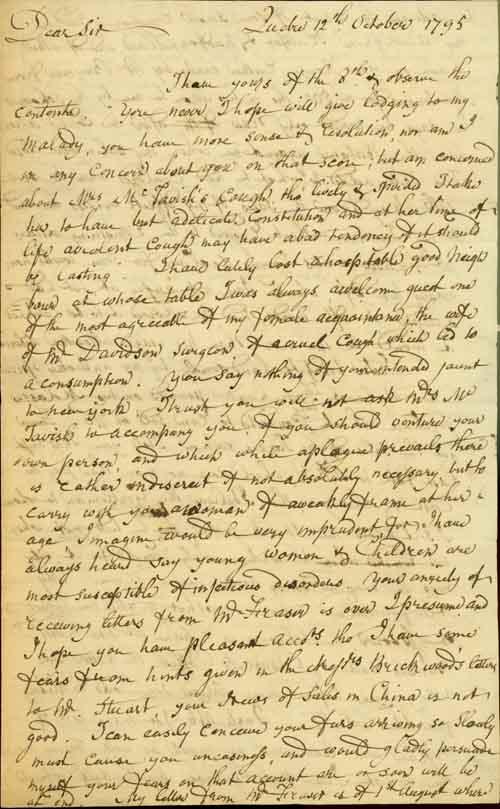 Dear Sir Quebec 12th October 1795
I have yours of the 8th & observe the
contents. You never I hope will give lodging to my
Malady, you have more sense & resolution nor am I
in any Concern about you on that score, but am concerned
about Mrs McTavish's Cough, tho lively & spirited I take
her to have but a delicate Constitution and at her time of
life a violent Cough may have a bad tendency if it should
be lasting I have lately lost a hospitable good Neigh
bour at whose table I was always a welcome guest one
of the most agreeable of my female acquaintance, the wife
of Mr Davidson Surgeon of a cruel Cough which led to
a consumption. You say nothing of your intended jaunt
to new york I trust you will not ask Mrs Mc
Tavish to accompany you, if you should venture your
own person, and which while a plague prevails there
is rather indiscreet if not absolutely necessary but to
carry with you a woman of a weakly frame at her
age I imagine would be very imprudent for I have
always heard say young women & Children are
most susceptible of infectious disorders. Your anxiety of
receiving letters from Mr Fraser is over I presume and
I hope you have pleasant accots. tho I have some
fears from hints given in the Messrs Brickwood's letters
to Mr. Stuart, your News of Sales in China is not
good. I can easily conceive your furs arriving so slowly
must cause you uneasiness, and would gladly persuade
myself your fears on that account are or soon will be
at end My letter from Mr Fraser is of 1st August where